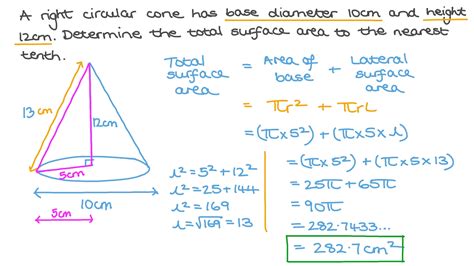 A right circular cone has base diameter 10cm and height
12cm. Determine the total surface area to the nearest
tenth.
Total surface area = Area of base + Lateral surface area
= πr² + πrL
= (π×5²) + (π×5×l)
13cm
12cm
5cm
10cm
5cm
l² = 5² + 12²
l² = 25 + 144
l² = 169
l = √169 = 13
= (π×5²) + (π×5×13)
= 25π + 65π
= 90π
= 282.7433...
= 282.7cm²